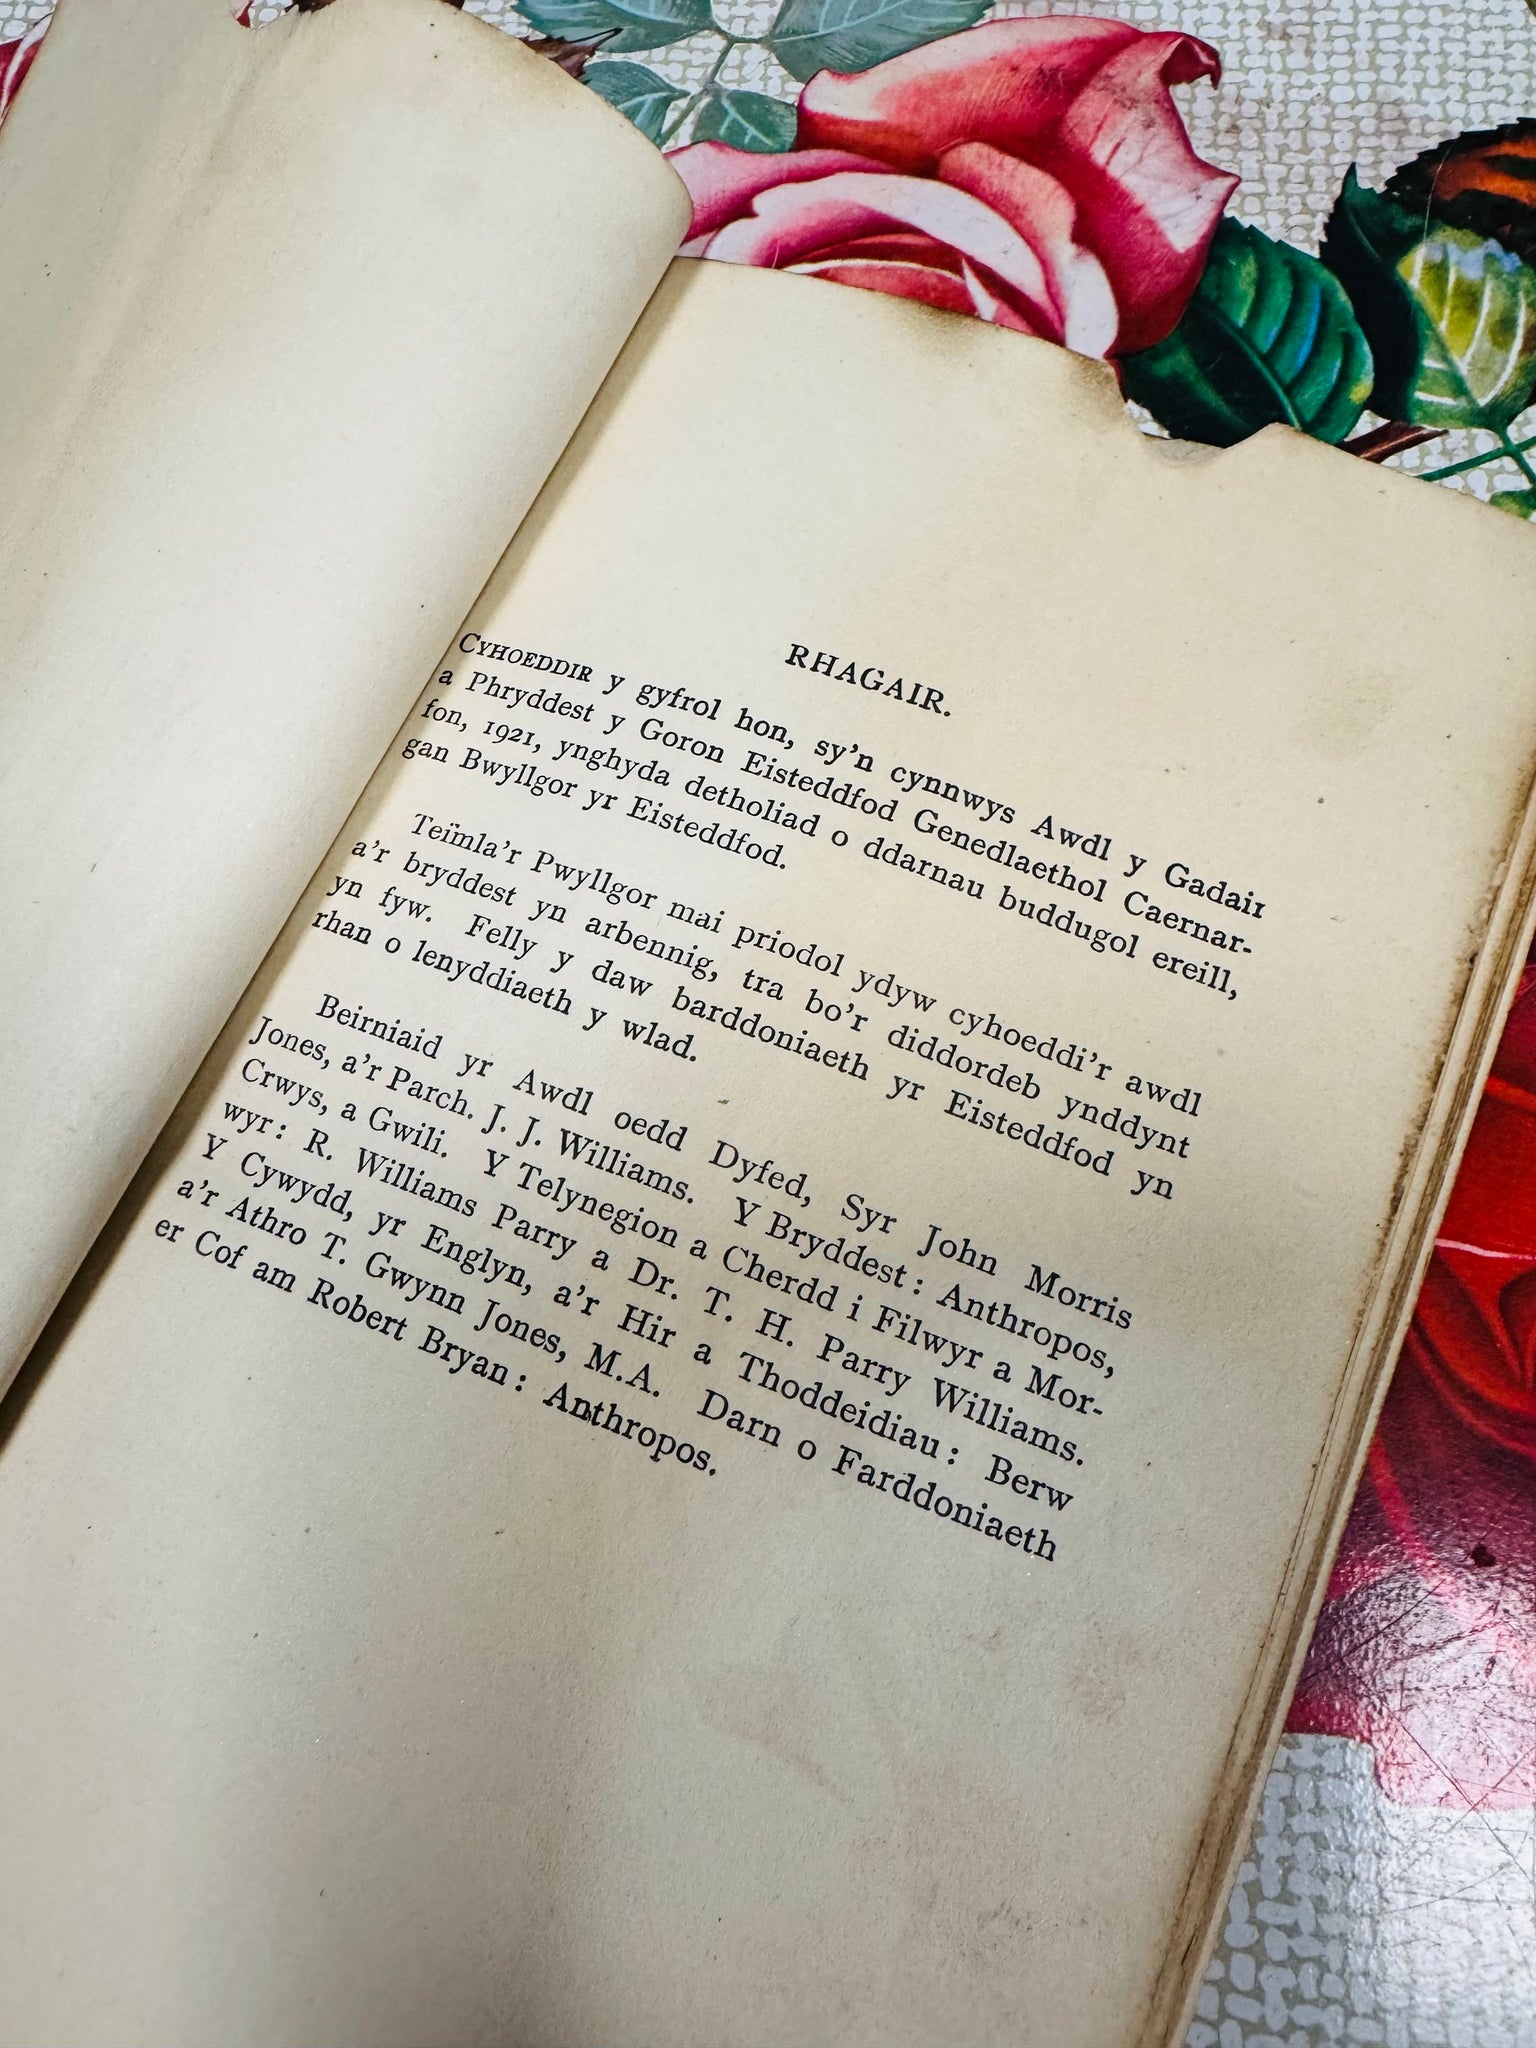 RHAGAIR.
CYHOEDDIR y gyfrol hon, sy'n cynnwys Awdl y Gadair
a Phryddest y Goron Eisteddfod Genedlaethol Caernar-
fon, 1921, ynghyda detholiad o ddarnau buddugol ereill,
gan Bwyllgor yr Eisteddfod.
Teïmla'r Pwyllgor mai priodol ydyw cyhoeddi'r awdl
a'r bryddest yn arbennig, tra bo'r diddordeb ynddynt
yn fyw. Felly y daw barddoniaeth yr Eisteddfod yn
rhan o lenyddiaeth y wlad.
Beirniaid yr Awdl oedd Dyfed, Syr John Morris
Jones, a'r Parch. J. J. Williams. Y Bryddest: Anthropos,
Crwys, a Gwili. Y Telynegion a Cherdd i Filwyr a Mor-
wyr: R. Williams Parry a Dr. T. H. Parry Williams.
Y Cywydd, yr Englyn, a'r Hir a Thoddeidiau: Berw
a'r Athro T. Gwynn Jones, M.A. Darn o Farddoniaeth
er Cof am Robert Bryan: Anthropos.